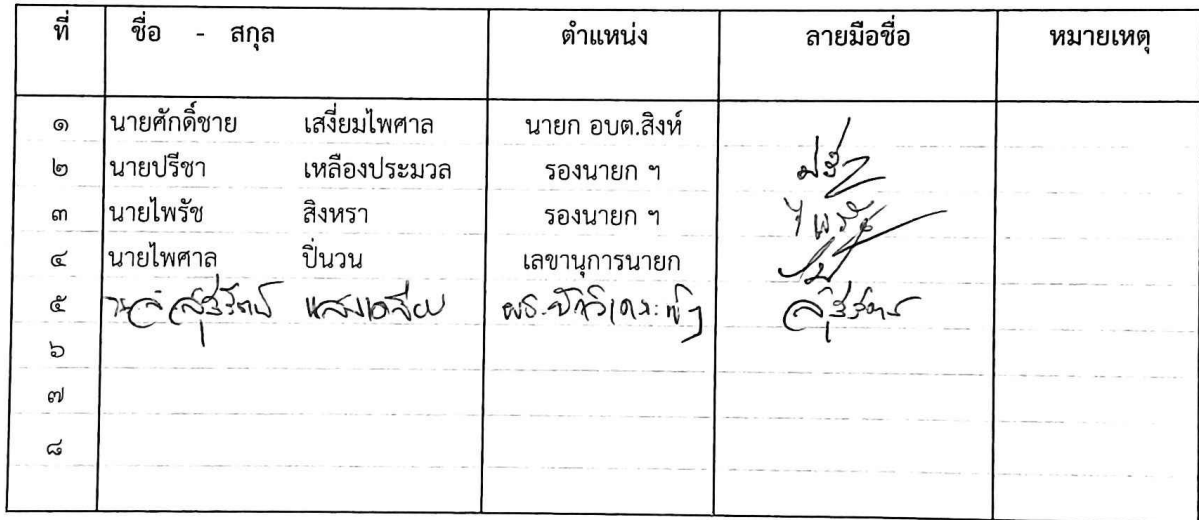 ที่ ชื่อ - สกุล ตำแหน่ง ลายมือชื่อ หมายเหตุ
๑ นายศักดิ์ชาย เสงี่ยมไพศาล นายก อบต.สิงห์
๒ นายปรีชา เหลืองประมวล รองนายก ฯ
๓ นายไพรัช สิงหรา รองนายก ฯ ไพรัช
๔ นายไพศาล ปิ่นนวน เลขานุการนายก
๕ สุรีรัตน์
๖
๗
๘